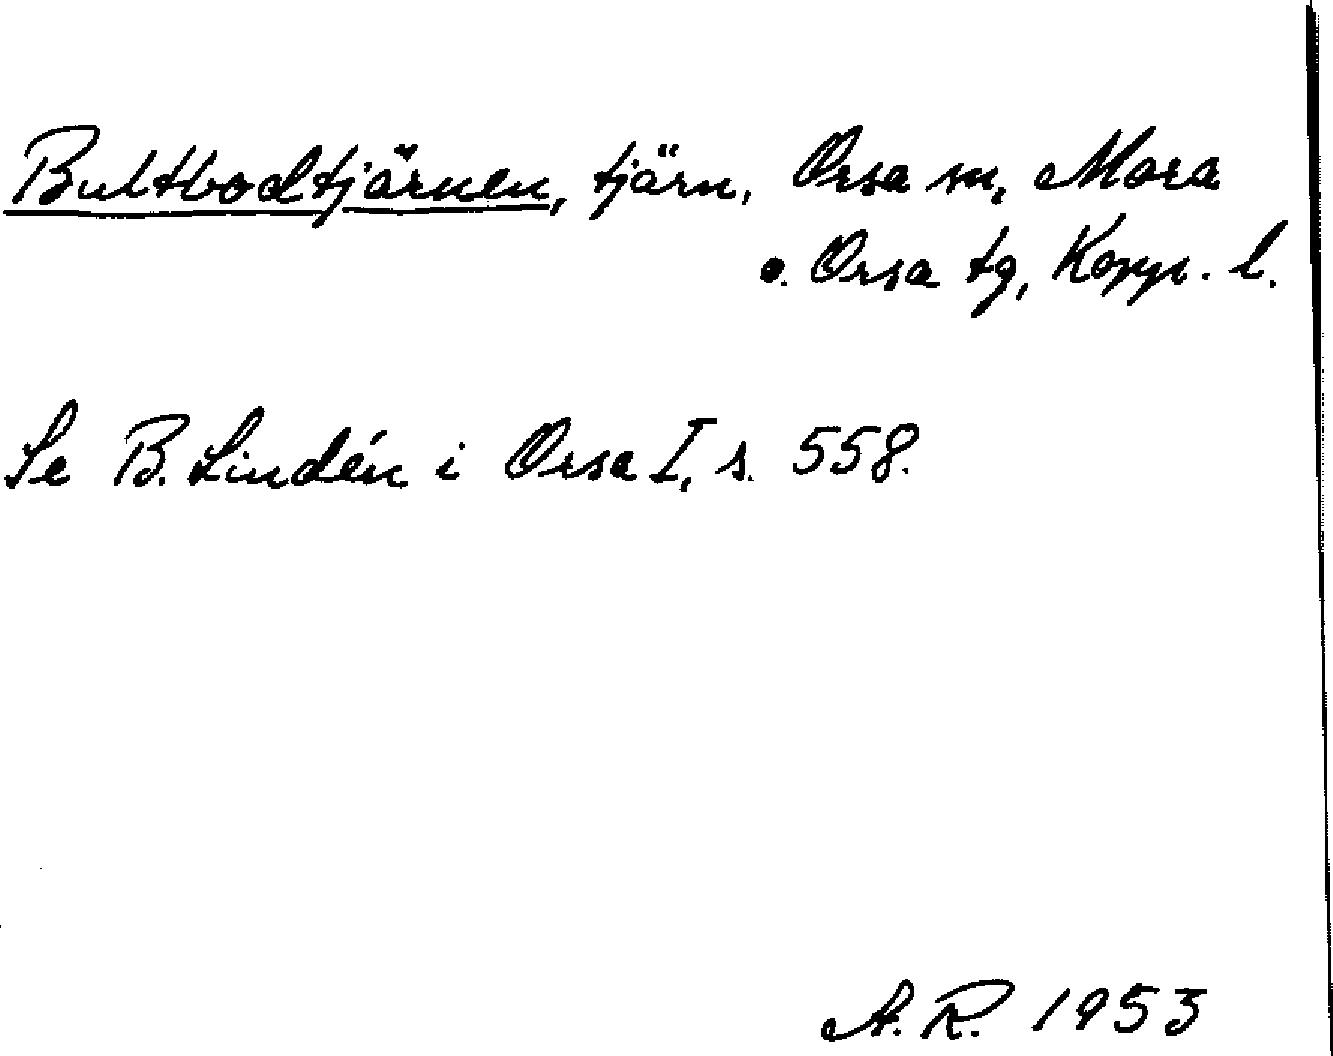 Bultbodtjärnen, tjärn, Orsa sn, Mora
o. Orsa tg, Kopp. l.
Se B. Lindén i Orsa I, s. 558.
A. R. 1953